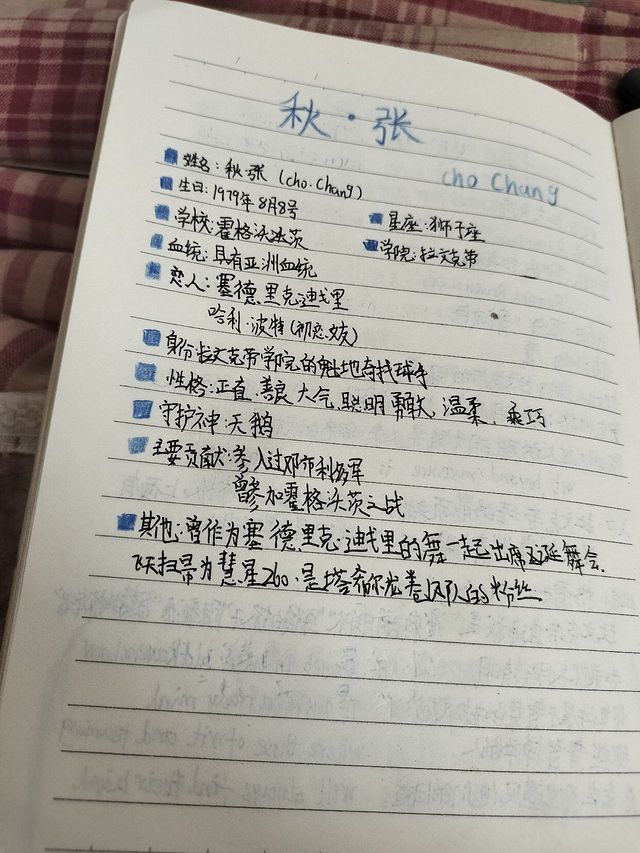 秋·张
cho Chang
姓名：秋·张（cho.chang）
生日：1979年8月8号
星座：狮子座
学校：霍格沃茨
学院：拉文克劳
血统：具有亚洲血统
恋人：塞德里克·迪戈里
哈利·波特（初恋女友）
身份：拉文克劳学院的魁地奇找球手
性格：正直、善良、大气、聪明勇敢，温柔、乖巧
守护神：天鹅
主要贡献：参入过邓布利多军
曾参加霍格沃茨之战
其他：曾作为塞德里克·迪戈里的舞一起出席圣诞舞会、
飞天扫帚为慧星260·是塔希尔龙卷风队的粉丝